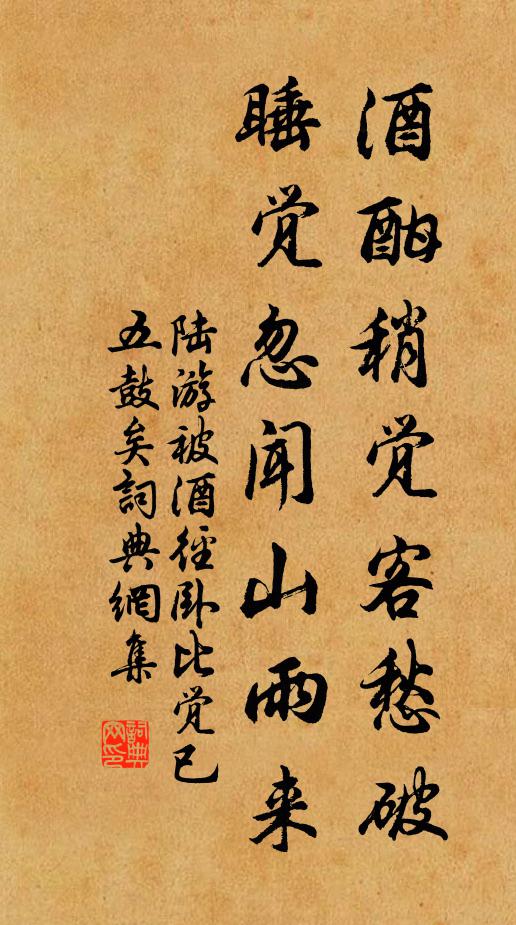 酒酣稍觉客愁破
睡觉忽闻山雨来
陆游被酒径卧比觉已
五鼓矣詞典網集
詞典
网印